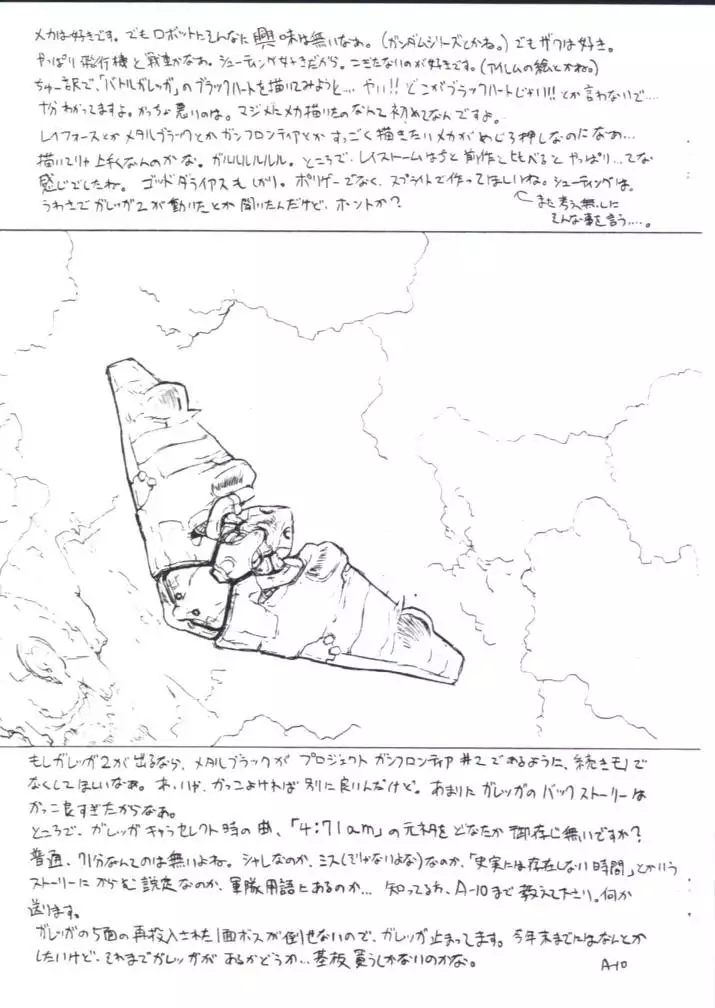 メカは好きです。でもロボットにそんなに興味は無いなあ。(ガンダムシリーズとかね。)でもザクは好き。
やっぱり飛行機と戦車かなあ。シューティング好きだから。こぎたないのが好きです。(アイレムの絵とかね。)
ちゅー訳で、「バトルガレッガ」のブラックハートを描いてみようと…。やい!!どこがブラックハートじゃい!!とか言わないで…。
十分わかってますよ。かっちょ悪いのは。マジメにメカ描いたのなんて初めてなんですよ。
レイフォースとかメタルブラックとかガンフロンティアとかすっごく描きたいメカがめじろ押しなのになあ…
描いてりゃ上手くなんのかな。ガルルルルルル。ところで、レイストームはちと前作と比べるとやっぱり…てな
感じでしたね。ゴッドダライアスもしかり。ポリゲーでなく、スプライトで作ってほしいね。シューティングは。
うわさでガレッガ2が動いたとか聞いたんだけど、ホントか?
また考え無しに
そんな事を言う…。
もしガレッガ2が出るなら、メタルブラックがプロジェクトガンフロンティア#2であるように、続きモノで
なくしてほしいなあ。あ、いや、かっこよければ別に良いんだけど。あまりにガレッガのバックストーリーは
かっこ良すぎたからなあ。
ところで、ガレッガキャラセレクト時の曲、「4:71am」の元ネタをどなたか御存じ無いですか?
普通、71分なんてのは無いよね。シャレなのか、ミス(じゃないよな)なのか、「史実には存在しない時間」とかいう
ストーリーにからむ設定なのか、軍隊用語にあるのか…知ってる方、A-10まで教えて下さい。何か
送ります。
ガレッガの5面の再投入された1面ボスが倒せないので、ガレッガ止まってます。今年末までにはなんとか
したいけど、それまでガレッガがあるかどうか…基板買うしかないのかな。
A-10